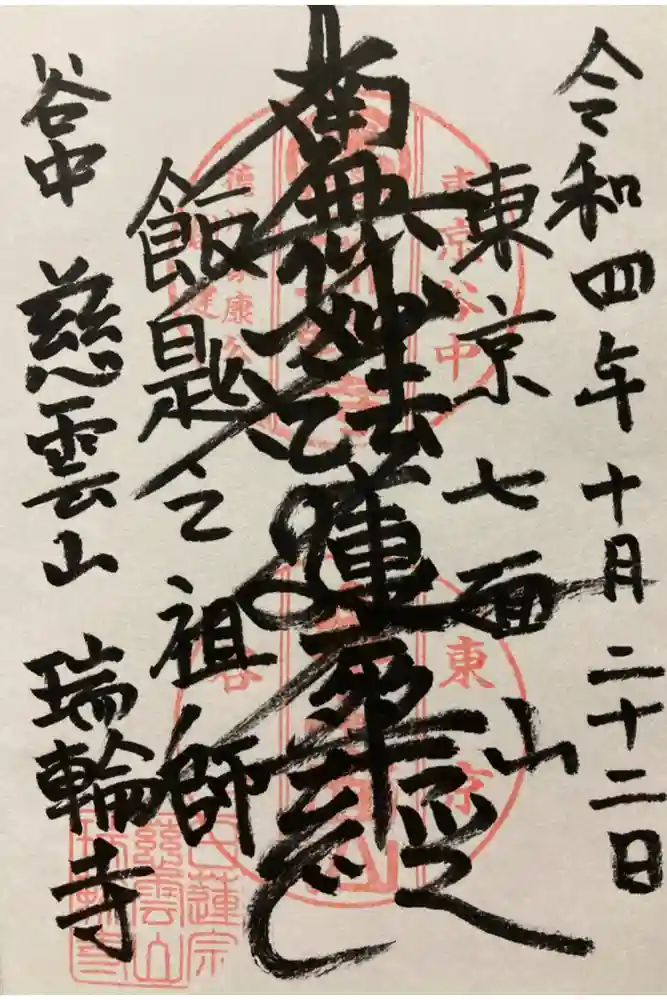 令和四年十月二十二日
東京七面山
南無妙法蓮華経
飯匙之祖師
谷中 慈雲山 瑞輪寺
東京谷中
東京
日蓮宗
慈雲山
瑞輪寺